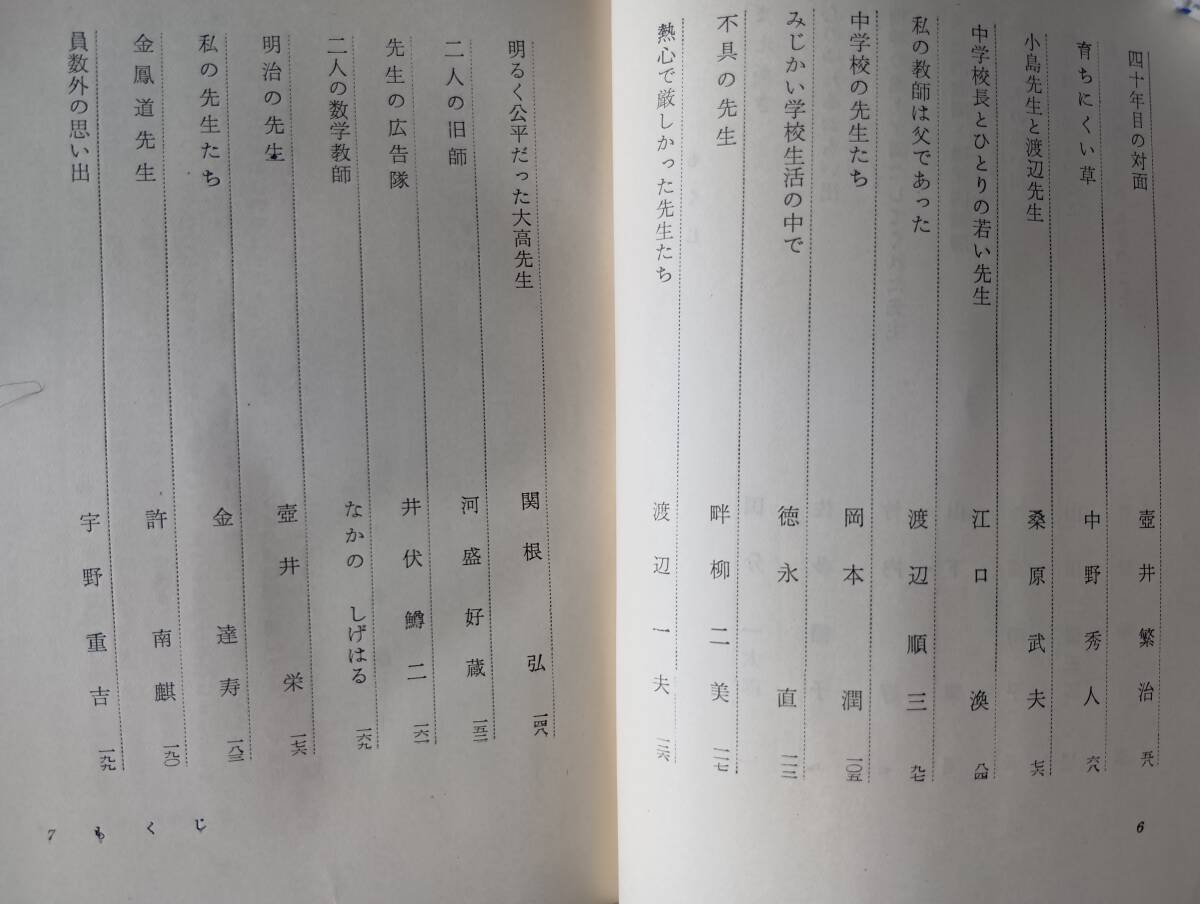 四十年目の対面 壺井繁治 五八
育ちにくい草 中野秀人 六八
小島先生と渡辺先生 桑原武夫 七六
中学校長とひとりの若い先生 江口渙 八四
私の教師は父であった 渡辺順三 九七
中学校の先生たち 岡本潤 一〇五
みじかい学校生活の中で 徳永直 一一二
不具の先生 畔柳二美 一二七
熱心で厳しかった先生たち 渡辺一夫 一三六
6
明るく公平だった大高先生 関根弘 一四八
二人の旧師 河盛好蔵 一五二
先生の広告隊 井伏鱒二 一六一
二人の数学教師 なかの しげはる 一六九
明治の先生 壺井栄 一七六
私の先生たち 金達寿 一八三
金鳳道先生 許南麒 一九〇
員数外の思い出 宇野重吉 一九九
7 もくじ